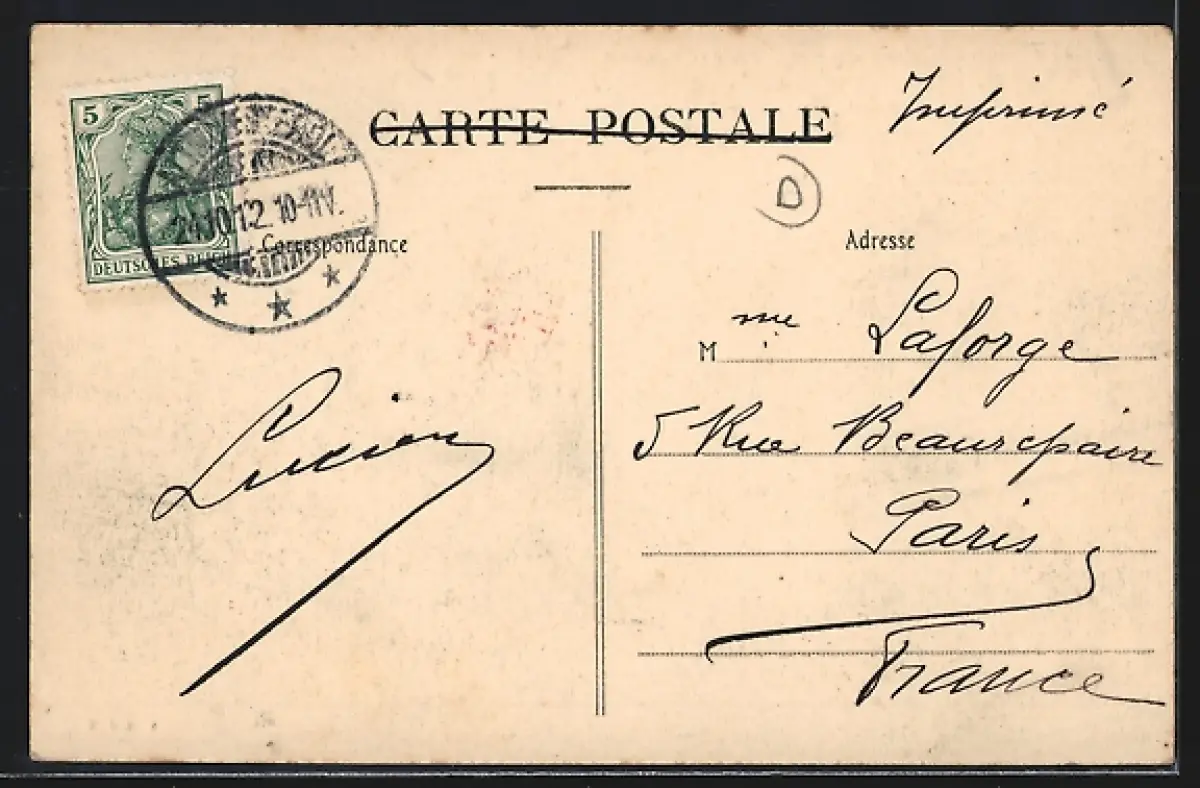 Imprimé
CARTE POSTALE
D
5 5
DEUTSCHES REICH
24.10.12. 10-11V.
Correspondance
Adresse
Mme Laforge
5 Rue Beaurepaire
Paris
France
Lucien